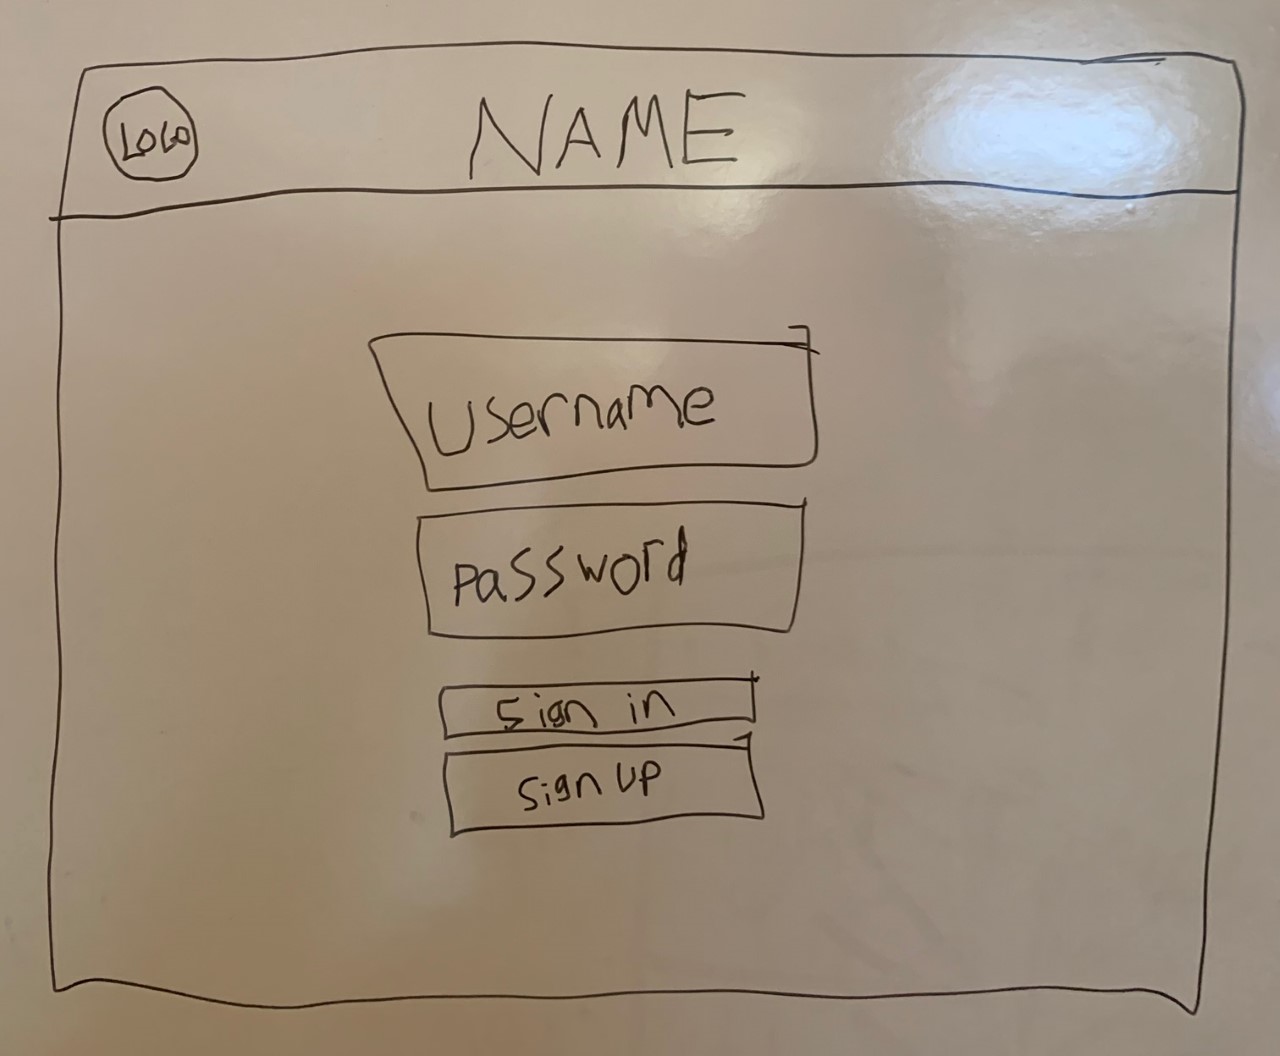 LOGO
NAME
username
password
sign in
sign up